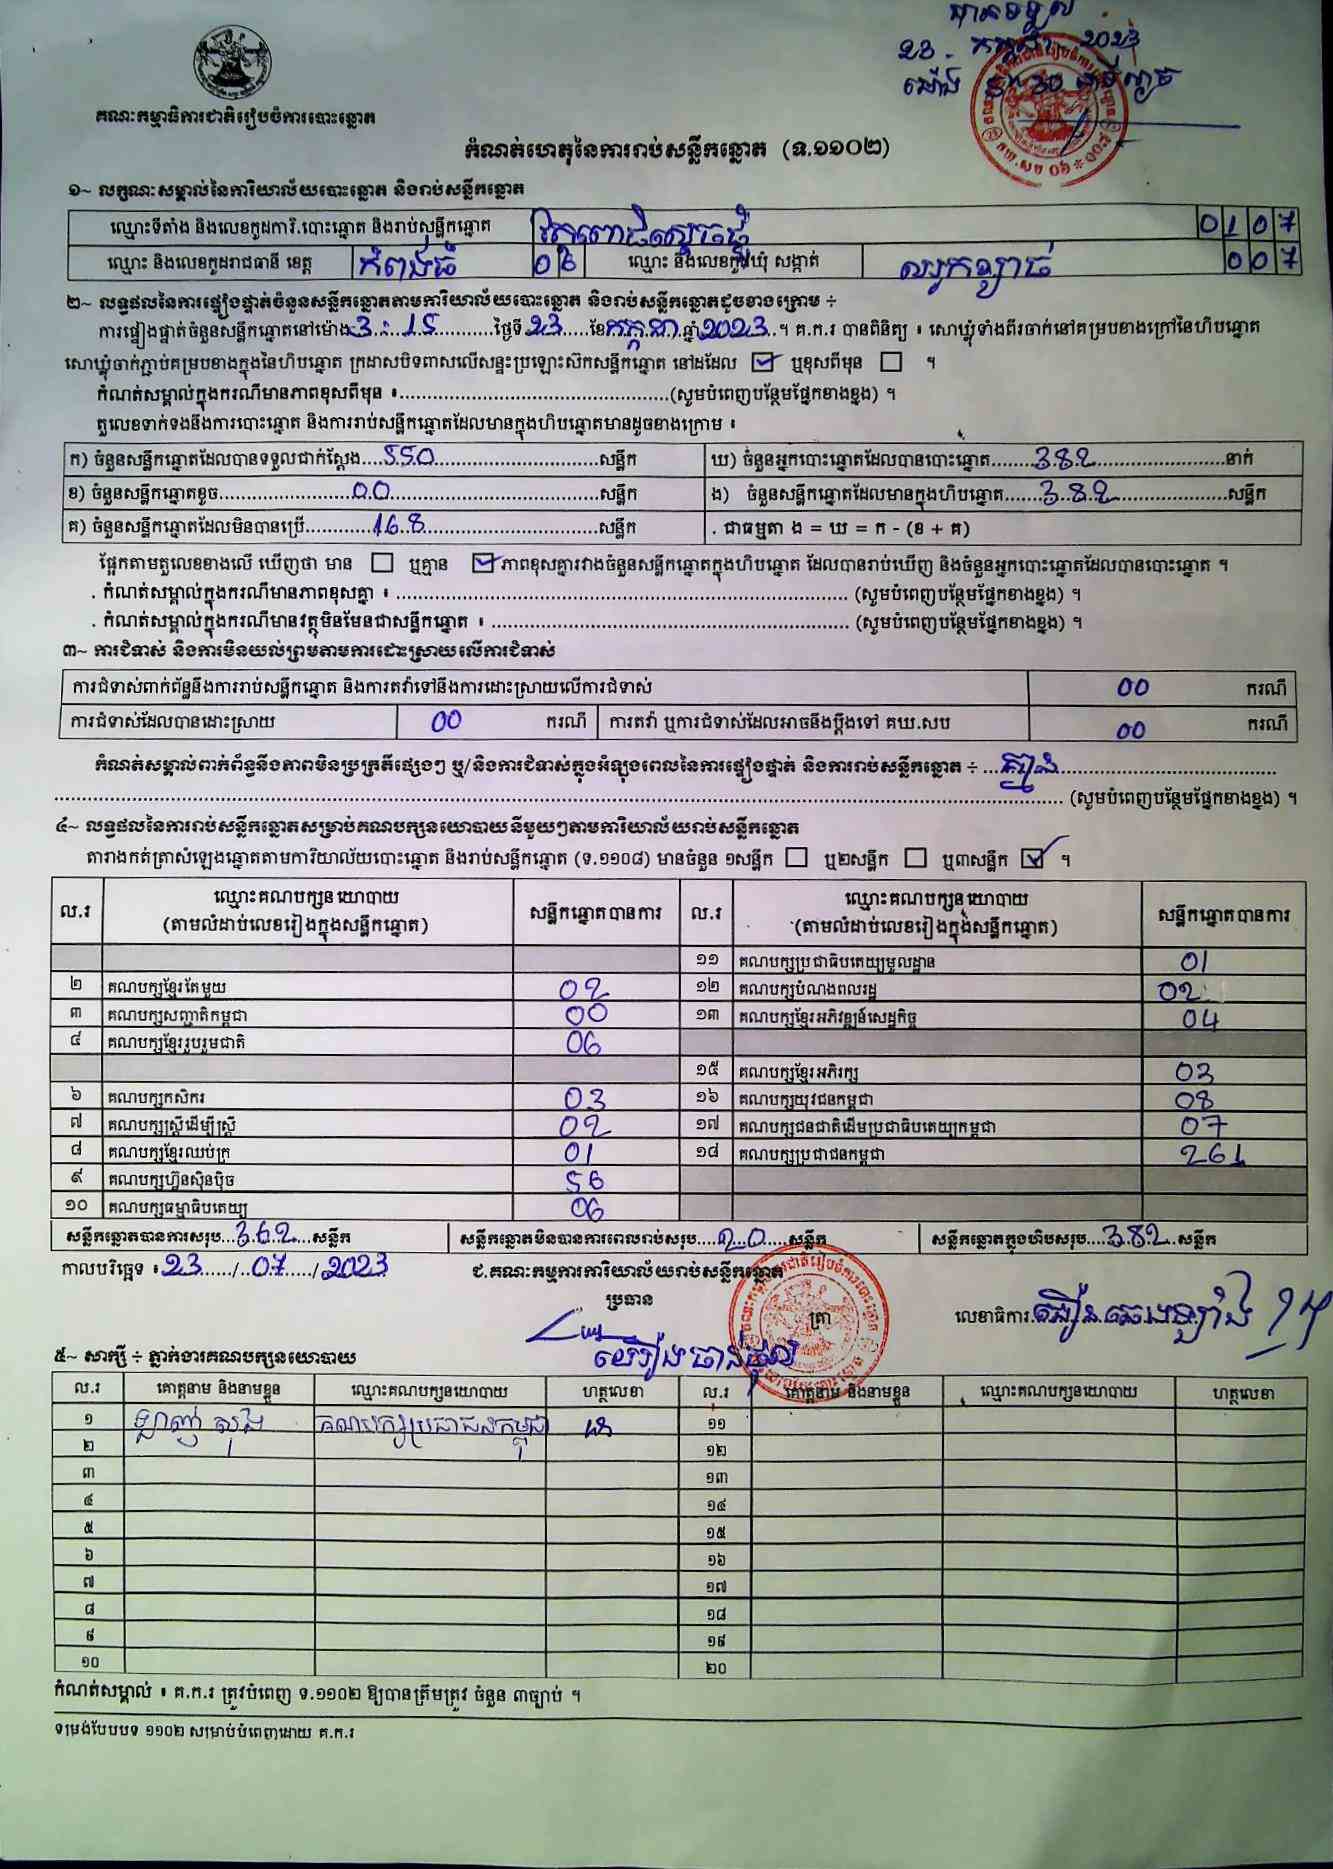 បានទទួល
23 - កក្កដា 2023
គណៈកម្មាធិការជាតិរៀបចំការបោះឆ្នោត
កំណត់ហេតុនៃការរាប់សន្លឹកឆ្នោត (ទ.១១០២)
១~ លក្ខណៈសម្គាល់នៃការិយាល័យបោះឆ្នោត និងរាប់សន្លឹកឆ្នោត
ឈ្មោះទីតាំង និងលេខកូដការិ.បោះឆ្នោត និងរាប់សន្លឹកឆ្នោត 0107
ឈ្មោះ និងលេខកូដរាជធានី ខេត្ត កំពង់ធំ 06 ឈ្មោះ និងលេខកូដឃុំ សង្កាត់ 007
២~ លទ្ធផលនៃការផ្ទៀងផ្ទាត់ចំនួនសន្លឹកឆ្នោតតាមការិយាល័យបោះឆ្នោត និងរាប់សន្លឹកឆ្នោតដូចខាងក្រោម ÷
ការផ្ទៀងផ្ទាត់ចំនួនសន្លឹកឆ្នោតនៅម៉ោង 3:15 ថ្ងៃទី 23 ខែ កក្កដា ឆ្នាំ 2023 ។ គ.ក.រ បានពិនិត្យ ៖ សោឃ្លុំទាំងពីរចាក់នៅគម្របខាងក្រៅនៃហិបឆ្នោត
សោឃ្លុំចាក់ភ្ជាប់គម្របខាងក្នុងនៃហិបឆ្នោត ក្រដាសបិទពាសលើសន្ទះប្រឡោះស៊កសន្លឹកឆ្នោត នៅដដែល ☑ ឬខុសពីមុន ☐ ។
កំណត់សម្គាល់ក្នុងករណីមានភាពខុសពីមុន ៖ (សូមបំពេញបន្ថែមផ្នែកខាងខ្នង) ។
តួលេខទាក់ទងនឹងការបោះឆ្នោត និងការរាប់សន្លឹកឆ្នោតដែលមានក្នុងហិបឆ្នោតមានដូចខាងក្រោម ៖
ក) ចំនួនសន្លឹកឆ្នោតដែលបានទទួលជាក់ស្តែង 550 សន្លឹក ឃ) ចំនួនអ្នកបោះឆ្នោតដែលបានបោះឆ្នោត 382 នាក់
ខ) ចំនួនសន្លឹកឆ្នោតខូច 00 សន្លឹក ង) ចំនួនសន្លឹកឆ្នោតដែលមានក្នុងហិបឆ្នោត 382 សន្លឹក
គ) ចំនួនសន្លឹកឆ្នោតដែលមិនបានប្រើ 168 សន្លឹក . ជាធម្មតា ង = ឃ = ក - (ខ + គ)
ផ្អែកតាមតួលេខខាងលើ ឃើញថា មាន ☐ ឬគ្មាន ☑ ភាពខុសគ្នារវាងចំនួនសន្លឹកឆ្នោតក្នុងហិបឆ្នោត ដែលបានរាប់ឃើញ និងចំនួនអ្នកបោះឆ្នោតដែលបានបោះឆ្នោត ។
. កំណត់សម្គាល់ក្នុងករណីមានភាពខុសគ្នា ៖ (សូមបំពេញបន្ថែមផ្នែកខាងខ្នង) ។
. កំណត់សម្គាល់ក្នុងករណីមានវត្ថុមិនមែនជាសន្លឹកឆ្នោត ៖ (សូមបំពេញបន្ថែមផ្នែកខាងខ្នង) ។
៣~ ការជំទាស់ និងការមិនយល់ព្រមតាមការដោះស្រាយលើការជំទាស់
ការជំទាស់ពាក់ព័ន្ធនឹងការរាប់សន្លឹកឆ្នោត និងការតវ៉ាទៅនឹងការដោះស្រាយលើការជំទាស់ 00 ករណី
ការជំទាស់ដែលបានដោះស្រាយ 00 ករណី ការតវ៉ា ឬការជំទាស់ដែលអាចនឹងប្តឹងទៅ គឃ.សប 00 ករណី
កំណត់សម្គាល់ពាក់ព័ន្ធនឹងភាពមិនប្រក្រតីផ្សេងៗ ឬ/និងការជំទាស់ក្នុងអំឡុងពេលនៃការផ្ទៀងផ្ទាត់ និងការរាប់សន្លឹកឆ្នោត ÷ គ្មាន
(សូមបំពេញបន្ថែមផ្នែកខាងខ្នង) ។
៤~ លទ្ធផលនៃការរាប់សន្លឹកឆ្នោតសម្រាប់គណបក្សនយោបាយនីមួយៗតាមការិយាល័យរាប់សន្លឹកឆ្នោត
តារាងកត់ត្រាសំឡេងឆ្នោតតាមការិយាល័យបោះឆ្នោត និងរាប់សន្លឹកឆ្នោត (ទ.១១០៨) មានចំនួន ១សន្លឹក ☐ ឬ២សន្លឹក ☐ ឬ៣សន្លឹក ☑ ។
ល.រ ឈ្មោះគណបក្សនយោបាយ (តាមលំដាប់លេខរៀងក្នុងសន្លឹកឆ្នោត) សន្លឹកឆ្នោតបានការ ល.រ ឈ្មោះគណបក្សនយោបាយ (តាមលំដាប់លេខរៀងក្នុងសន្លឹកឆ្នោត) សន្លឹកឆ្នោតបានការ
១១ គណបក្សប្រជាធិបតេយ្យមូលដ្ឋាន 01
២ គណបក្សខ្មែរតែមួយ 02 ១២ គណបក្សបំណងពលរដ្ឋ 02
៣ គណបក្សសញ្ជាតិកម្ពុជា 00 ១៣ គណបក្សខ្មែរអភិវឌ្ឍន៍សេដ្ឋកិច្ច 04
៤ គណបក្សខ្មែររួបរួមជាតិ 06
១៥ គណបក្សខ្មែរអភិរក្ស 03
៦ គណបក្សកសិករ 03 ១៦ គណបក្សយុវជនកម្ពុជា 08
៧ គណបក្សស្ត្រីដើម្បីស្ត្រី 02 ១៧ គណបក្សជនជាតិដើមប្រជាធិបតេយ្យកម្ពុជា 07
៨ គណបក្សខ្មែរឈប់ក្រ 01 ១៨ គណបក្សប្រជាជនកម្ពុជា 261
៩ គណបក្សហ៊្វុនស៊ិនប៉ិច 56
១០ គណបក្សធម្មាធិបតេយ្យ 06
សន្លឹកឆ្នោតបានការសរុប 362 សន្លឹក សន្លឹកឆ្នោតមិនបានការពេលរាប់សរុប 20 សន្លឹក សន្លឹកឆ្នោតក្នុងហិបសរុប 382 សន្លឹក
កាលបរិច្ឆេទ ៖ 23/07/2023 ជ.គណៈកម្មការការិយាល័យរាប់សន្លឹកឆ្នោត
ប្រធាន ត្រា លេខាធិការ
៥~ សាក្សី ÷ ភ្នាក់ងារគណបក្សនយោបាយ
ល.រ គោត្តនាម និងនាមខ្លួន ឈ្មោះគណបក្សនយោបាយ ហត្ថលេខា ល.រ គោត្តនាម និងនាមខ្លួន ឈ្មោះគណបក្សនយោបាយ ហត្ថលេខា
១ គណបក្សប្រជាជនកម្ពុជា ១១
២ ១២
៣ ១៣
៤ ១៤
៥ ១៥
៦ ១៦
៧ ១៧
៨ ១៨
៩ ១៩
១០ ២០
កំណត់សម្គាល់ ៖ គ.ក.រ ត្រូវបំពេញ ទ.១១០២ ឱ្យបានត្រឹមត្រូវ ចំនួន ៣ច្បាប់ ។
ទម្រង់បែបបទ ១១០២ សម្រាប់បំពេញដោយ គ.ក.រ